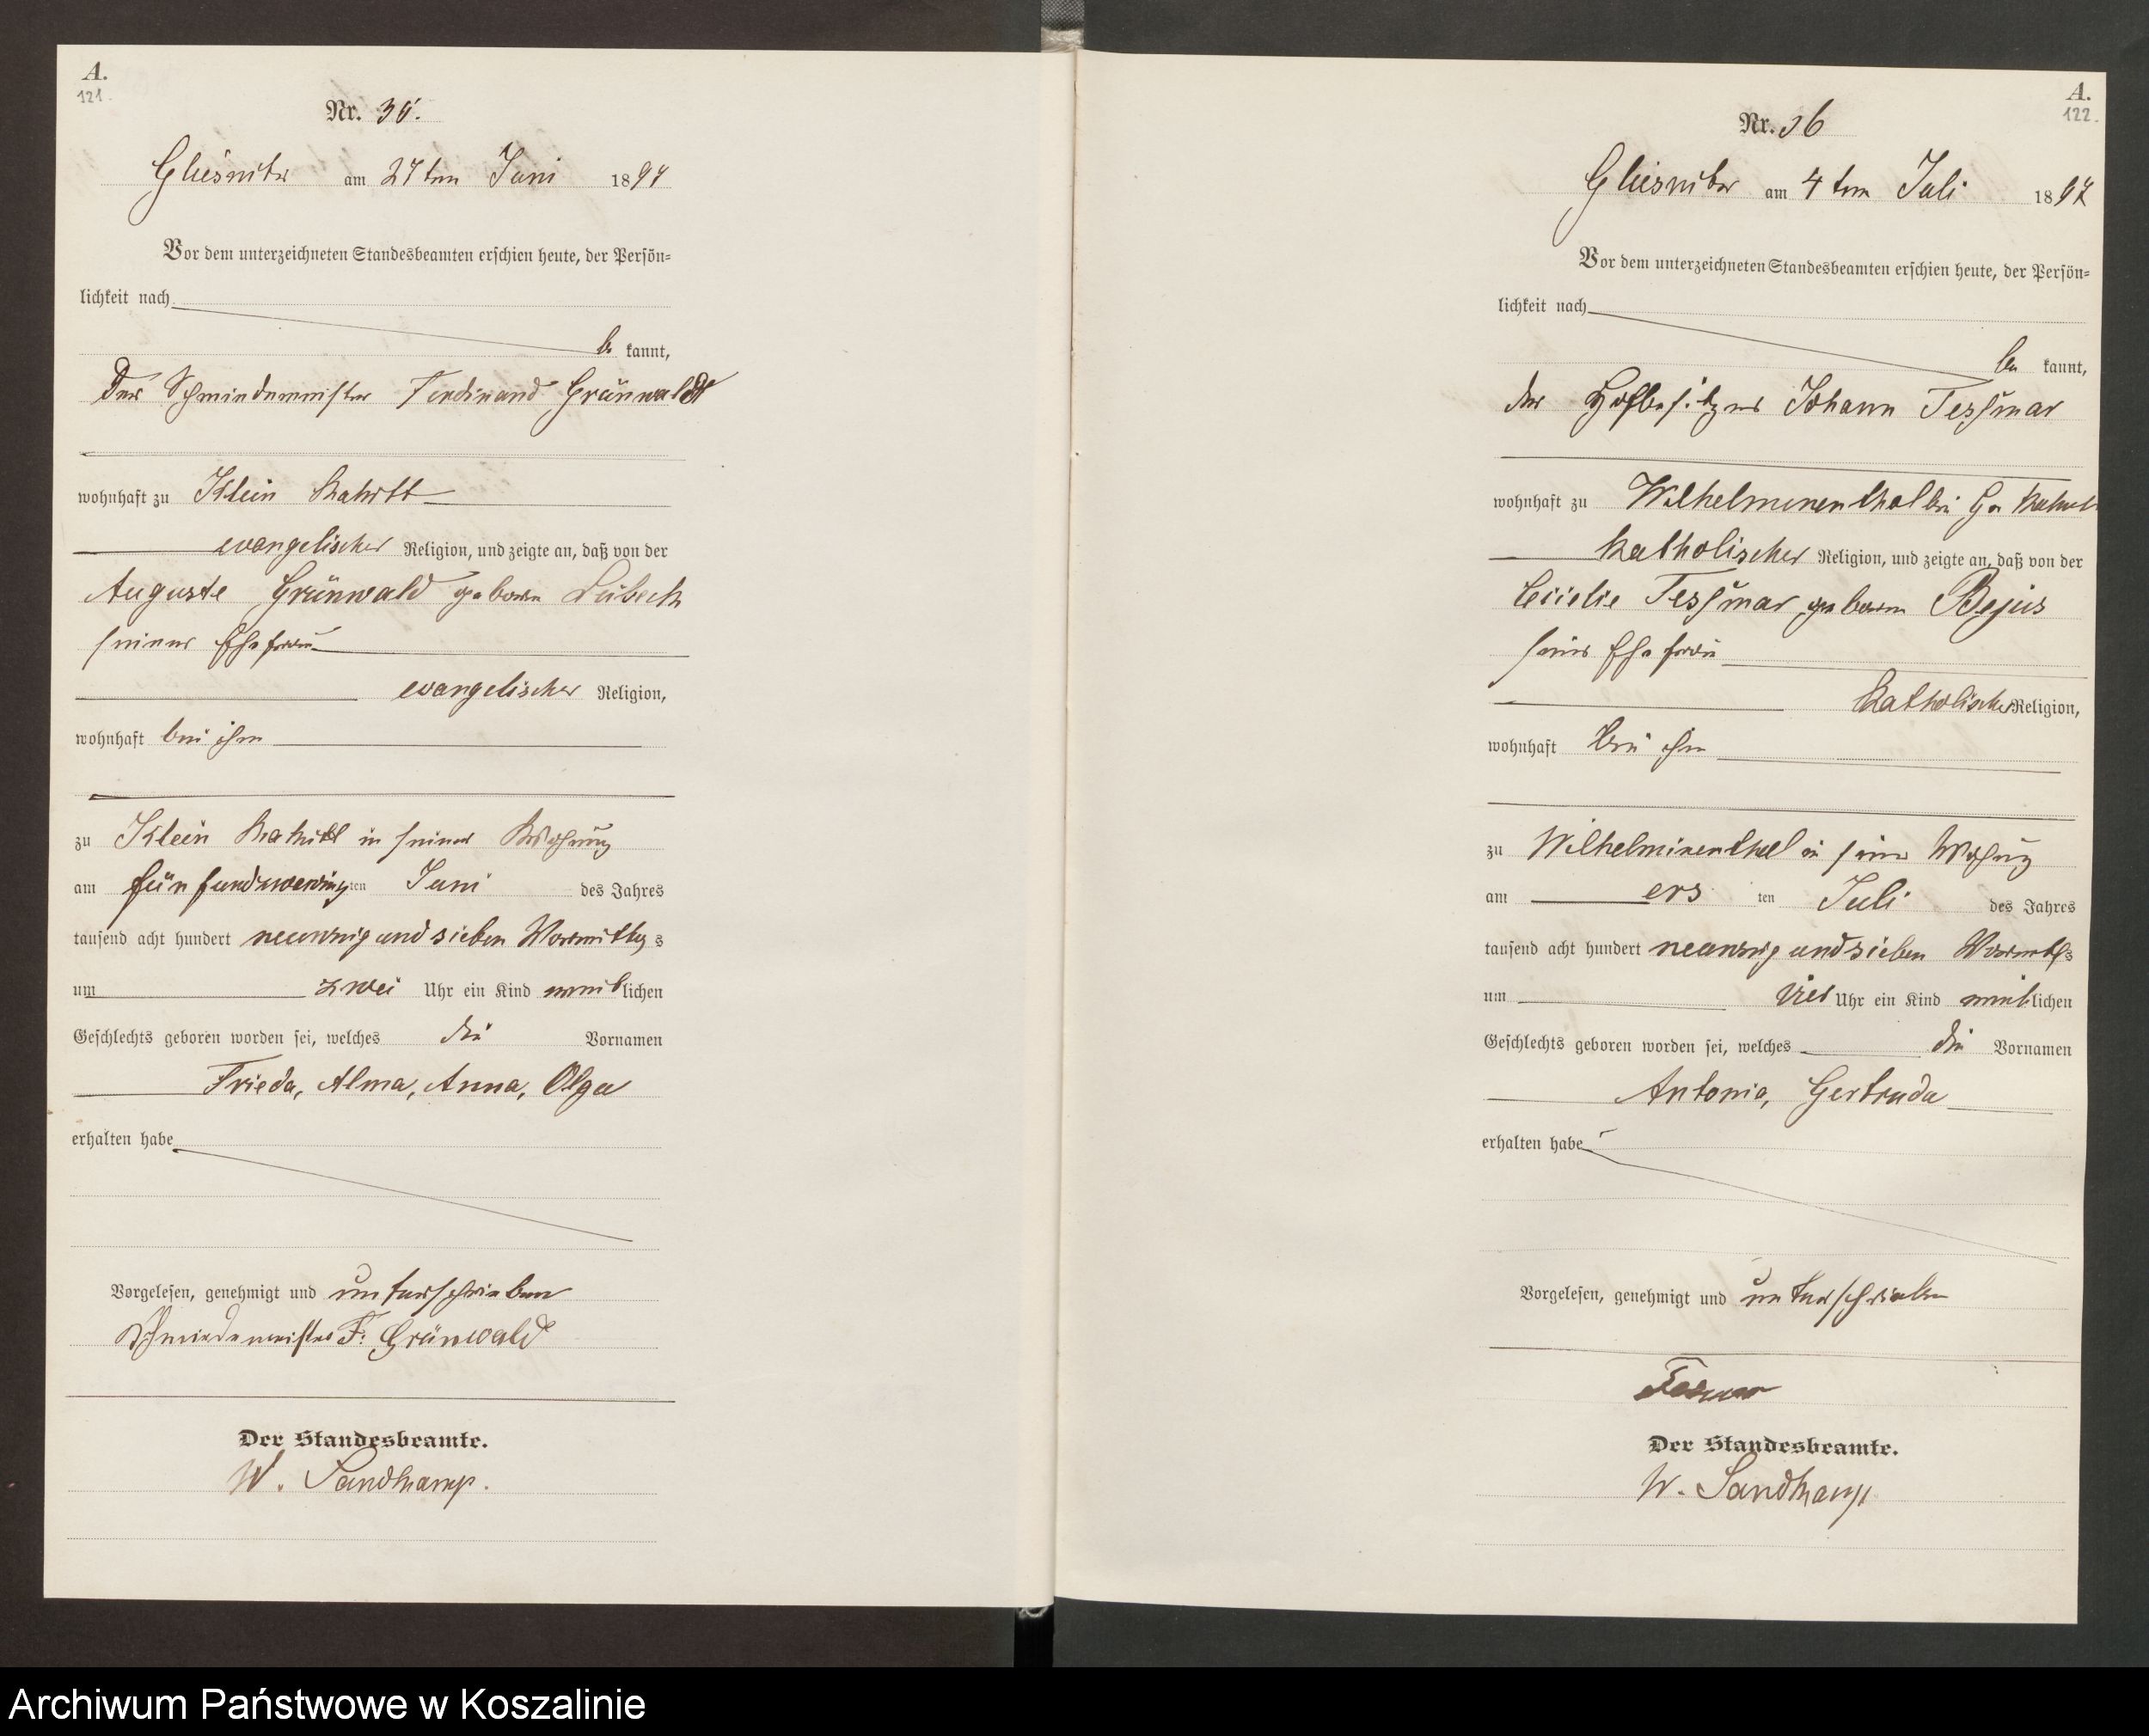 A.
121.
Nr. 35.
Gliesnitz am 27ten Juni 1897
Vor dem unterzeichneten Standesbeamten erschien heute, der Persön-
lichkeit nach
be kannt,
Der Schmiedemeister Ferdinand Grünwald
wohnhaft zu Klein
evangelischer Religion, und zeigte an, daß von der
Auguste Grünwald geboren Lübeck
seiner Ehefrau
evangelischer Religion,
wohnhaft bei ihm
zu Klein in seiner Wohnung
am fünfundzwanzigten Juni des Jahres
tausend acht hundert neunzig und sieben Vormittags
um zwei Uhr ein Kind weiblichen
Geschlechts geboren worden sei, welches die Vornamen
Frieda, Alma, Anna, Olga
erhalten habe
Vorgelesen, genehmigt und unterschrieben
Schmiedemeister F. Grünwald
Der Standesbeamte.
W. Sandkamp.
A.
122.
Nr. 36
am 4ten Juli 1897
Vor dem unterzeichneten Standesbeamten erschien heute, der Persön-
lichkeit nach
be kannt,
der Hofbesitzer Johann Tessmar
wohnhaft zu Wilhelminenthal bei Gr
katholischer Religion, und zeigte an, daß von der
Tessmar geboren
seiner Ehefrau
katholischer Religion,
wohnhaft bei ihm
zu Wilhelminenthal in seiner Wohnung
am ers ten Juli des Jahres
tausend acht hundert neunzig und sieben Vormittags
um vier Uhr ein Kind weiblichen
Geschlechts geboren worden sei, welches die Vornamen
Antonia, Gertruda
erhalten habe
Vorgelesen, genehmigt und unterschrieben
Der Standesbeamte.
W. Sandkamp
Archiwum Państwowe w Koszalinie